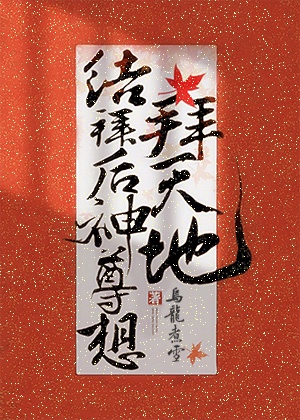 拜天地
结拜后神尊想
烏龍煮雪
著